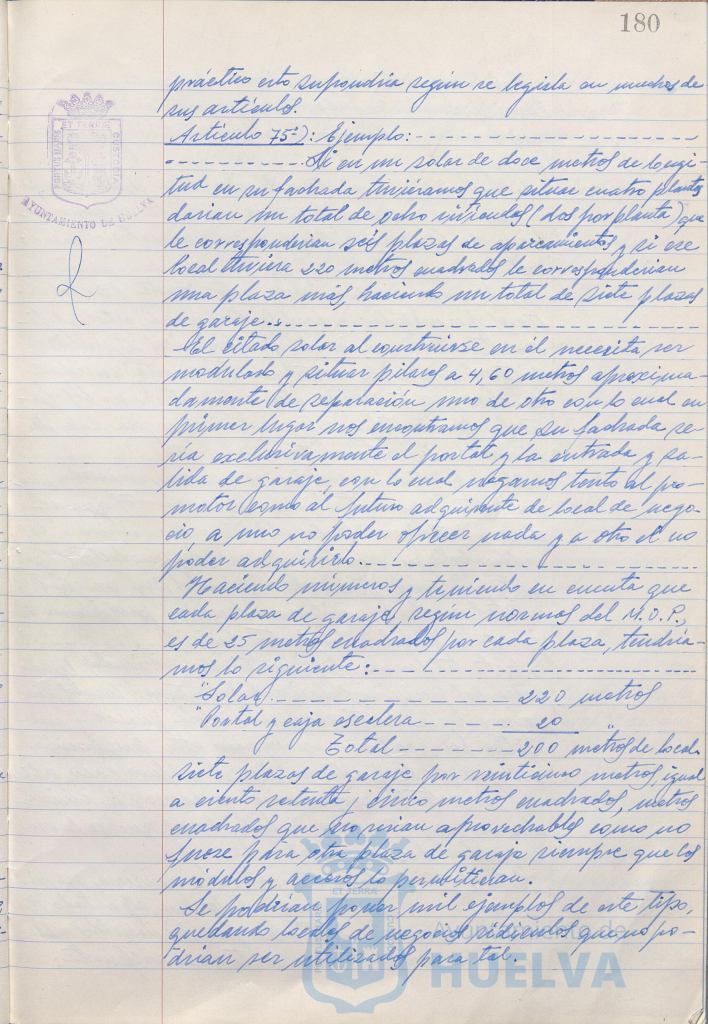 180
práctico esto supondría según se legisla en muchos de
sus artículos.
Artículo 75-): Ejemplo:
Si en un solar de doce metros de longi-
tud en su fachada tuviéramos que situar cuatro plantas
darían un total de ocho viviendas (dos por planta) que
le corresponderían seis plazas de aparcamientos y si ese
local tuviera 220 metros cuadrados le corresponderían
una plaza más, haciendo un total de siete plazas
de garaje.
El citado solar al construirse en él necesita ser
modulado y situar pilares a 4,60 metros aproxima-
damente de separación uno de otro con lo cual en
primer lugar nos encontramos que su fachada se-
ría exclusivamente el portal y la entrada y sa-
lida de garaje, con lo cual negamos tanto al pro-
motor como al futuro adquirente de local de nego-
cio, a uno no poder ofrecer nada y a otro el no
poder adquirirlo.
Haciendo números y teniendo en cuenta que
cada plaza de garaje, según normas del M.O.P.,
es de 25 metros cuadrados por cada plaza, tendría-
mos lo siguiente:
"Solar 220 metros
"Portal y caja escalera 20 "
Total 200 metros de local.
Siete plazas de garaje por veinticinco metros, igual
a ciento setenta y cinco metros cuadrados, metros
cuadrados que no serían aprovechables como no
fuese para otra plaza de garaje siempre que los
módulos y accesos lo permitieran.
Se podrían poner mil ejemplos de este tipo,
quedando locales de negocios ridículos que no po-
drían ser utilizados para tal.
PORTUS MARIS
ET TERRAE
CUSTODIA
AYUNTAMIENTO DE HUELVA
HUELVA